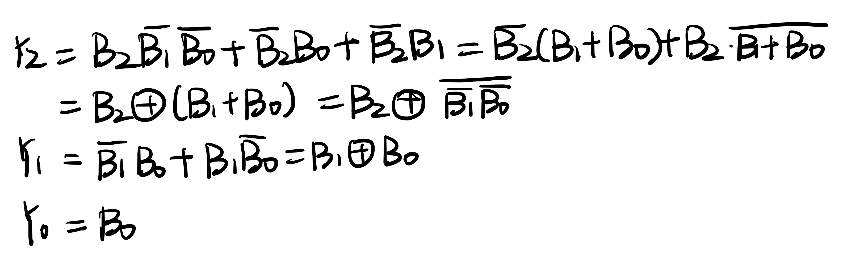 Y₂ = B₂B̅₁B̅₀ + B̅₂B₀ + B̅₂B₁ = B̅₂(B₁+B₀) + B₂·\overline{B₁+B₀}
= B₂⊕(B₁+B₀) = B₂⊕ \overline{B̅₁B̅₀}
Y₁ = B̅₁B₀ + B₁B̅₀ = B₁⊕B₀
Y₀ = B₀